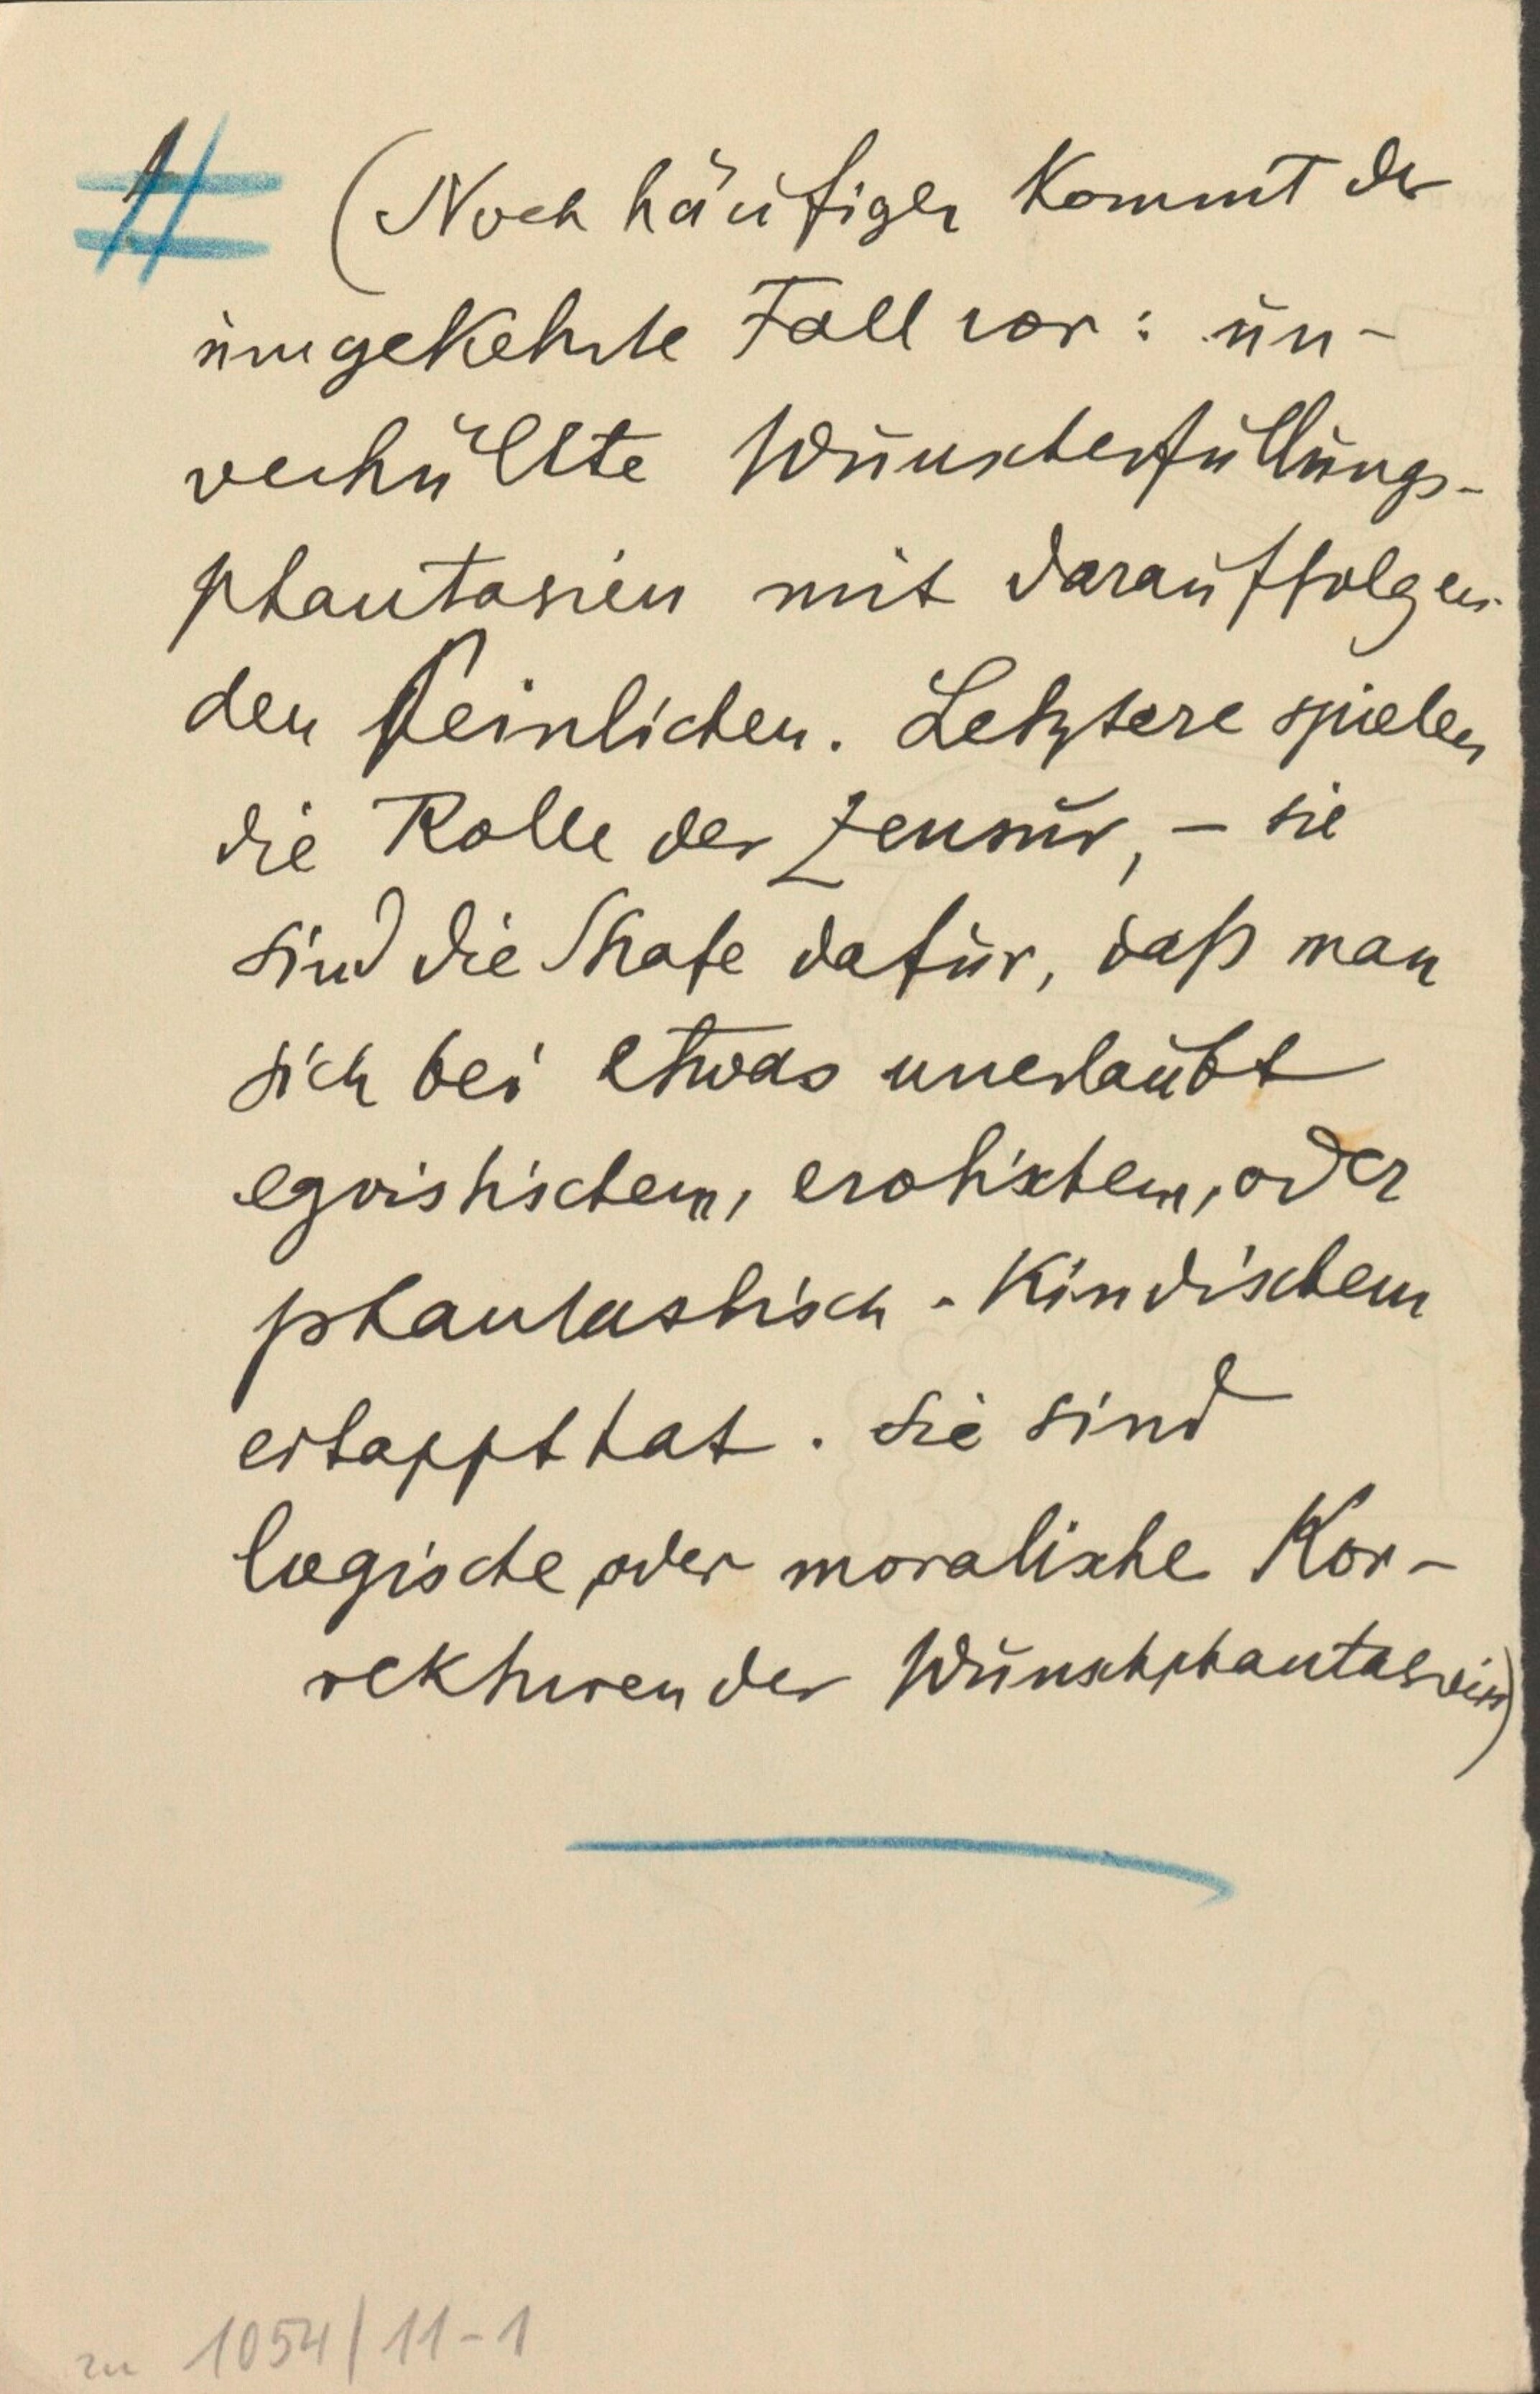 # (Noch häufiger kommt der
umgekehrte Fall vor: un-
verhüllte Wunscherfüllungs-
phantasien mit darauffolgen-
den peinlichen. Letztere spielen
die Rolle der Zensur, – sie
sind die Strafe dafür, daß man
sich bei etwas unerlaubt
egoistischem, erotischem, oder
phantastisch-kindischem
ertappt hat. Sie sind
logische oder moralische Kor-
rekturen der Wunschphantasien)
zu 1054/11-1